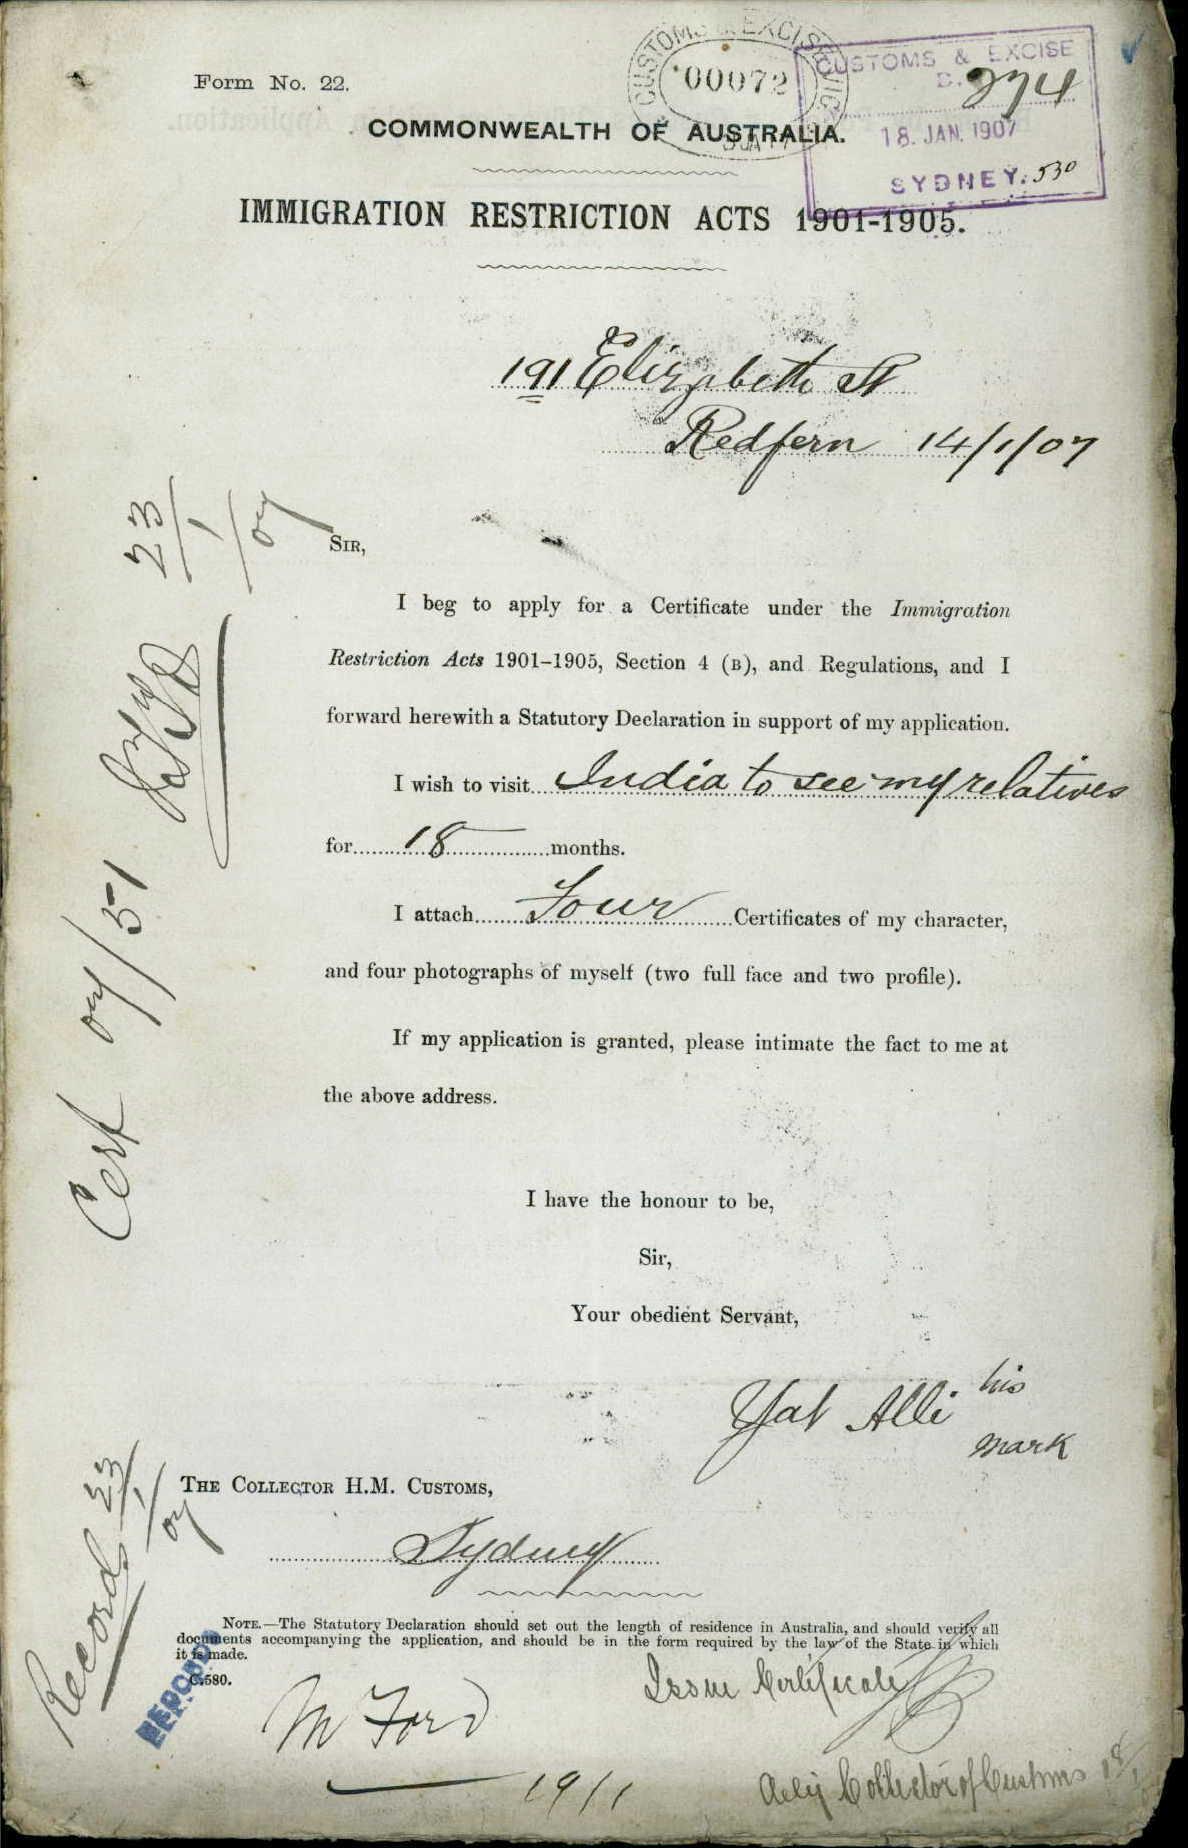 Form No. 22.
CUSTOMS & EXCISE
00072
CUSTOMS & EXCISE
274
18. JAN. 1907
SYDNEY. 530
COMMONWEALTH OF AUSTRALIA.
IMMIGRATION RESTRICTION ACTS 1901-1905.
191 Elizabeth St
Redfern 14/1/07
23/1/07
SIR,
I beg to apply for a Certificate under the Immigration
Restriction Acts 1901–1905, Section 4 (B), and Regulations, and I
forward herewith a Statutory Declaration in support of my application.
I wish to visit India to see my relatives
for 18 months.
I attach Four Certificates of my character,
and four photographs of myself (two full face and two profile).
If my application is granted, please intimate the fact to me at
the above address.
Cert 07/51
I have the honour to be,
Sir,
Your obedient Servant,
Yat Alli his
mark
THE COLLECTOR H.M. CUSTOMS,
Sydney
Records 23/1/07
NOTE.—The Statutory Declaration should set out the length of residence in Australia, and should verify all
documents accompanying the application, and should be in the form required by the law of the State in which
it is made.
C.580.
Issue Certificate
M Ford
19/1
Collector of Customs 18/1